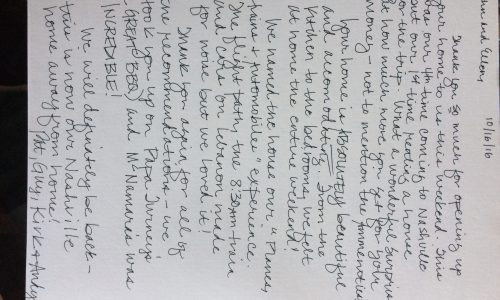 10/16/16
and Ellen,
Thank you so much for opening up
your home to us this weekend. This
was our 4th time coming to Nashville
but our 1st time renting a home
for the trip. What a wonderful surprise
how much more you get for your
money - not to mention the ammenities
Your home is ABSOLUTELY beautiful
and accomodating. From the
kitchen to the bedrooms, we felt
at home the entire weekend!
We named the home our "Planes,
trains & Automobiles" experience.
The flight path, the 8:30am train
and cars on Lebanon made
for noise but we loved it!
Thank you again, for all of
the recommendations - we
took you up on Papa Turney's
(GREAT BBQ) and McNamaras was
INCREDIBLE!
We will definitely be back -
this is now our Nashville
home away from home!
Pat, Guy, Kirk & Andy